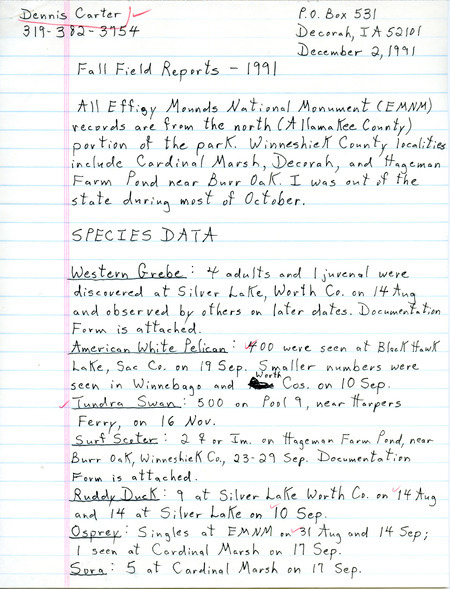 Dennis Carter
319-382-3954
P.O. Box 531
Decorah, IA 52101
December 2, 1991
Fall Field Reports - 1991
All Effigy Mounds National Monument (EMNM)
records are from the north (Allamakee County)
portion of the park. Winneshiek County localities
include Cardinal Marsh, Decorah, and Hageman
Farm Pond near Burr Oak. I was out of the
state during most of October.
SPECIES DATA
Western Grebe: 4 adults and 1 juvenal were
discovered at Silver Lake, Worth Co. on 14 Aug
and observed by others on later dates. Documentation
Form is attached.
American White Pelican: 400 were seen at Black Hawk
Lake, Sac Co. on 19 Sep. Smaller numbers were
seen in Winnebago and Worth Cos. on 10 Sep.
Tundra Swan: 500 on Pool 9, near Harpers
Ferry, on 16 Nov.
Surf Scoter: 2 ♀ or Im. on Hageman Farm Pond, near
Burr Oak, Winneshiek Co., 23-29 Sep. Documentation
Form is attached.
Ruddy Duck: 9 at Silver Lake Worth Co. on 14 Aug
and 14 at Silver Lake on 10 Sep.
Osprey: Singles at EMNM on 31 Aug and 14 Sep;
1 seen at Cardinal Marsh on 17 Sep.
Sora: 5 at Cardinal Marsh on 17 Sep.